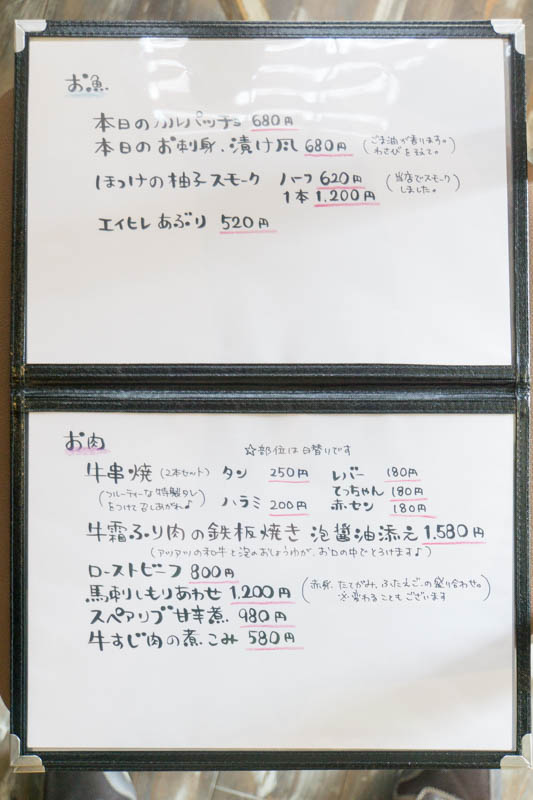 お魚
本日のカルパッチョ 680円
本日のお刺身、漬け風 680円 (ごま油が香ります。
わさびを添えて。)
ほっけの柚子スモーク ハーフ 620円 (当店でスモーク
1本 1,200円 しました。)
エイヒレあぶり 520円
お肉
☆部位は日替りです
牛串焼 (2本セット) タン 250円 レバー 180円
(フルーティーな特製タレ てっちゃん 180円
をつけて召しあがれ♪) ハラミ 200円 赤セン 180円
牛霜ふり肉の鉄板焼き 泡醤油添え 1,580円
(アツアツの和牛と泡のおしょうゆが、お口の中でとろけます♪)
ローストビーフ 800円
馬刺しもりあわせ 1,200円 (赤身、たてがみ、ふたえごの盛り合わせ。
※変わることもございます)
スペアリブ甘辛煮 980円
牛すじ肉の煮こみ 580円